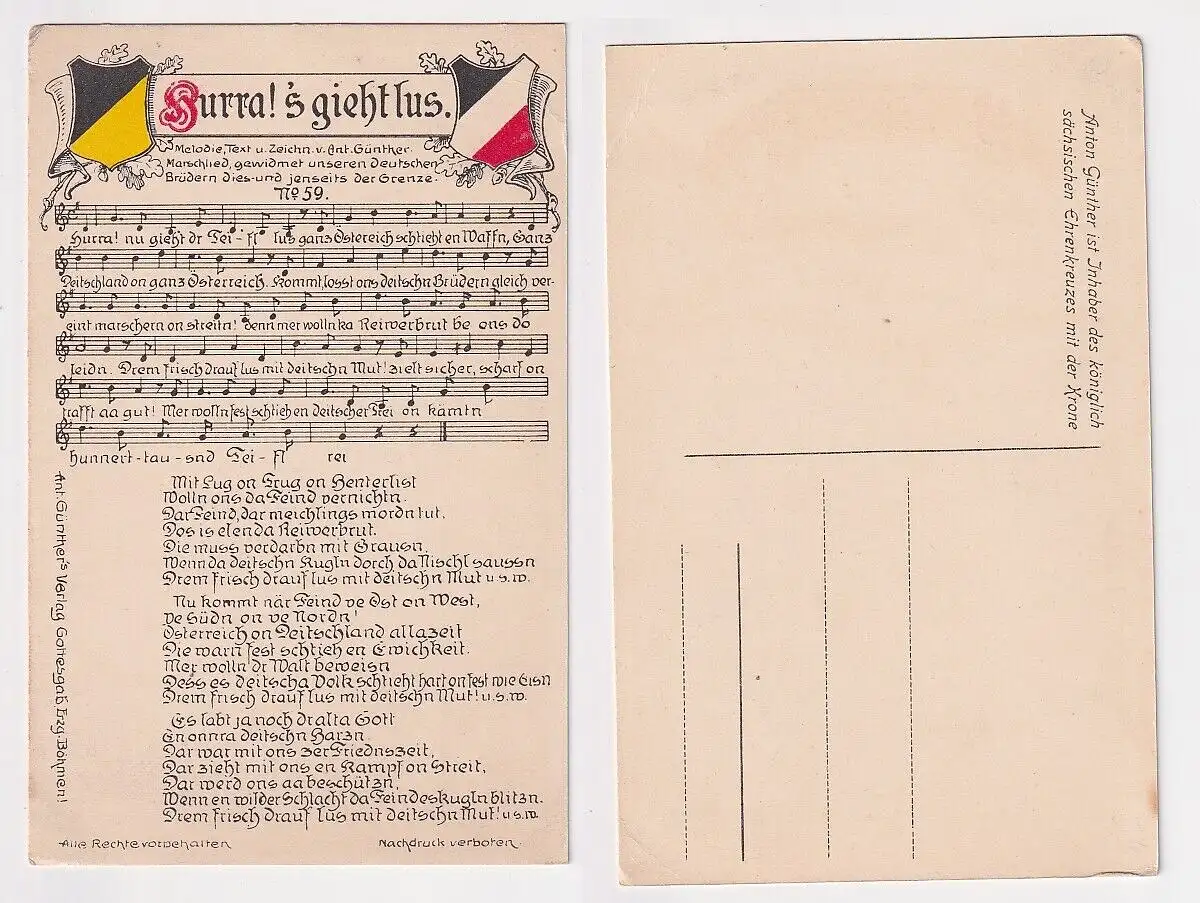 Hurra! 's gieht lus.
Melodie, Text u. Zeichn. v. Ant. Günther.
Marschlied, gewidmet unseren deutschen
Brüdern dies- und jenseits der Grenze.
No 59.
Hurra! nu gieht dr Tei-fl lus ganz Östereich schtieht en Waffn, Ganz
Deitschland on ganz Österreich. Kommt, losst ons deitschn Brüdern gleich ver-
eint marschern on streitn! denn mer wolln ka Reiwerbrut be ons do
leidn. Drem frisch drauf lus mit deitschn Mut! zielt sicher, scharf on
trafft aa gut! Mer wolln fest schtieh en deitscher Trei on kämtn
hunnert-tau-snd Tei-fl rei
Mit Lug on Trug on Henterlist
Wolln ons da Feind vernichtn.
Dar Feind, dar meichlings mordn tut,
Dos is elenda Reiwerbrut.
Die muss verdarbn mit Grausn,
Wenn da deitschn Kugln dorch da Nischl saussn
Drem frisch drauf lus mit deitschn Mut u.s.w.
Nu kommt när Feind ve Ost on West,
Ve Südn on ve Nordn!
Österreich on Deitschland allazeit
Die warn fest schtieh en Ewichkeit.
Mer wolln dr Walt beweisn
Dess es deitscha Volk schtieht hart on fest wie Eisn
Drem frisch drauf lus mit deitschn Mut! u.s.w.
Es labt ja noch dr alta Gott
En onnra deitschn Harzn.
Dar war mit ons zer Friednszeit,
Dar zieht mit ons en Kampf on Streit,
Dar werd ons aa beschützn,
Wenn en wilder Schlacht da Feindeskugln blitzn.
Drem frisch drauf lus mit deitschn Mut! u.s.w.
Ant. Günther's Verlag Gottesgab, Erzg. Böhmen!
Alle Rechte vorbehalten
Nachdruck verboten.
Anton Günther ist Inhaber des königlich
sächsischen Ehrenkreuzes mit der Krone